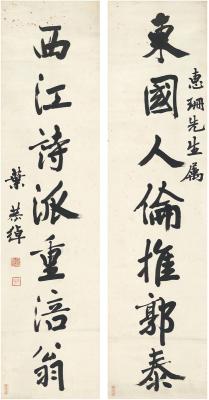 東國人倫推郭泰
惠珊先生屬
西江詩派重涪翁
葉恭綽